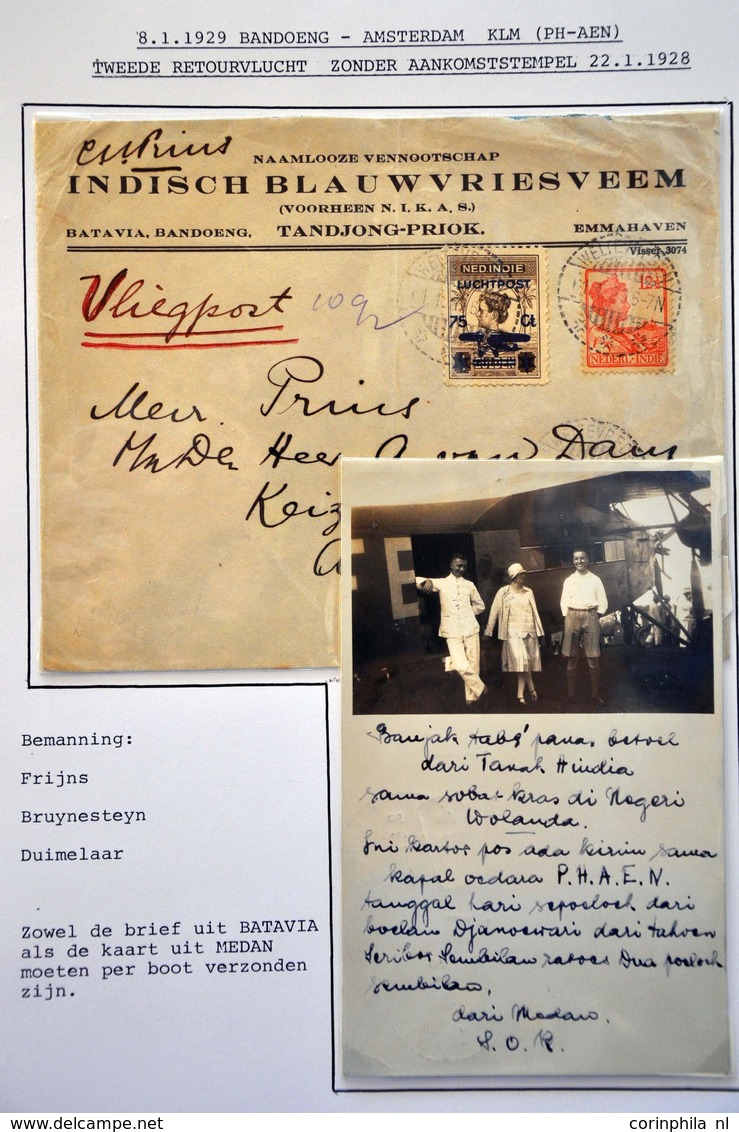 8.1.1929 BANDOENG - AMSTERDAM KLM (PH-AEN)
TWEEDE RETOURVLUCHT ZONDER AANKOMSTSTEMPEL 22.1.1928
NAAMLOOZE VENNOOTSCHAP
INDISCH BLAUWVRIESVEEM
(VOORHEEN N. I. K. A. S.)
BATAVIA, BANDOENG, TANDJONG-PRIOK. EMMAHAVEN
Visser, 3074
Vliegpost
NED. INDIE
LUCHTPOST
75 Ct
GULDEN
WELTEVREDEN
12½
NEDERL-INDIE
Mevr. Prins
Den Heer A. van Dam
Keiz
E
Banjak tabe' panas betoel
dari Tanah Hindia
sama sobat kras di Negeri
Wolanda.
Ini kartoe pos ada kirim sama
kapal oedara P.H.A.E.N.
tanggal hari sepoeloeh dari
boelan Djanoewari dari tahoen
Seriboe Sembilan ratoes Dua poeloeh
sembilan,
dari Medan.
S. O. K.
Bemanning:
Frijns
Bruynesteyn
Duimelaar
Zowel de brief uit BATAVIA
als de kaart uit MEDAN
moeten per boot verzonden
zijn.
corinphila nl